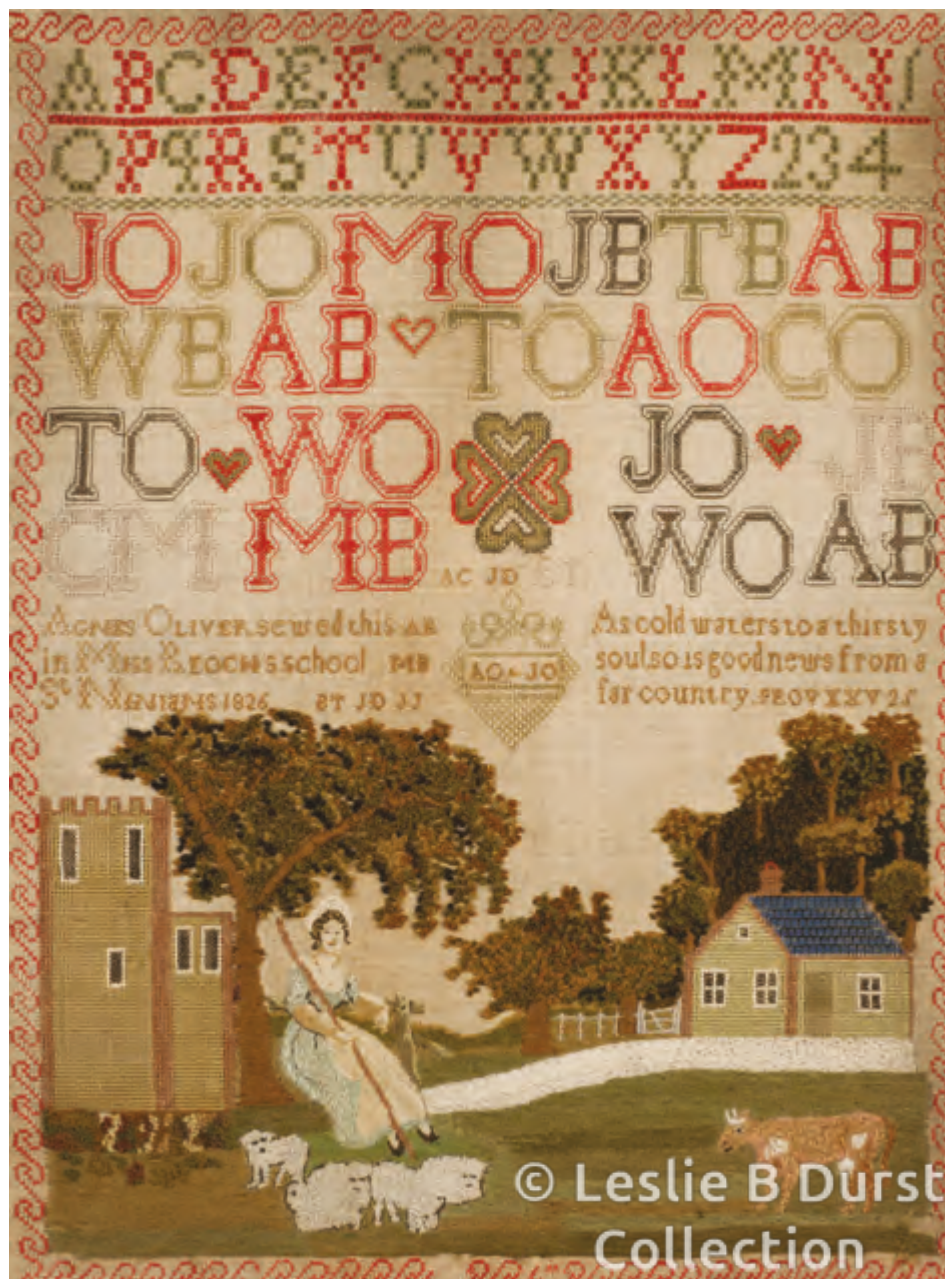 ABCDEFGHIJKLMN
OPQRSTUVWXYZ234
JO JO MO JB TB AB
WB AB TO AO CO
TO WO JO JB
CM MB WO AB
AC JD
AGNES OLIVER sewed this AB
in MISS school MB
St NINIANS 1826 BT JD JJ
AO JO
As cold waters to a thirsty
soul so is good news from a
far country. PROV XXV 25
© Leslie B Durst
Collection